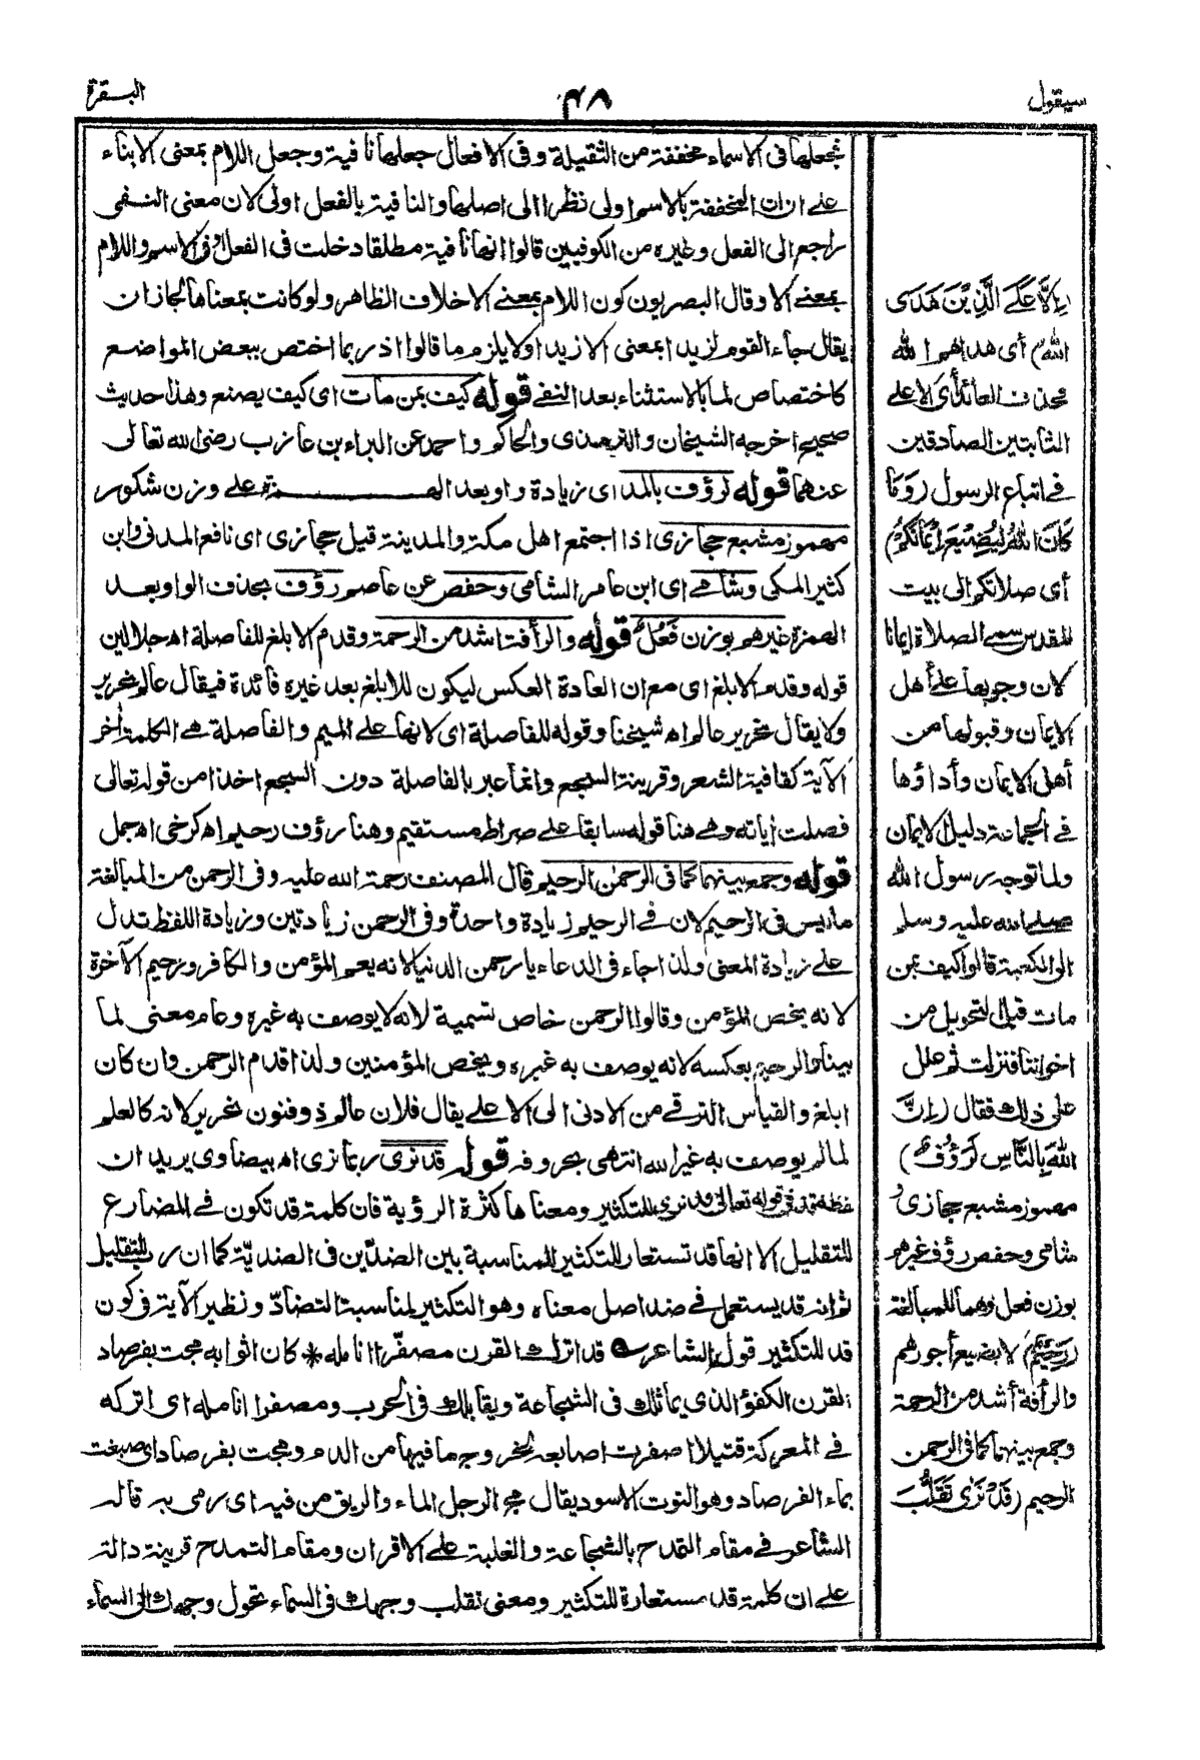 سيقول
٤٨
البقرة
إلا على الذين هدى
الله) أى هداهم الله
فحذف العائد أى الا على
الثابتين الصادقين
في اتباع الرسول (وما
كان الله ليضيع إيمانكم)
أى صلاتكم إلى بيت
المقدس سمى الصلاة إيمانا
لان وجوبها على أهل
الإيمان وقبولها من
أهل الايمان وأداؤها
في الجماعة دليل الايمان
ولما توجه رسول الله
صلى الله عليه وسلم
الى الكعبة قالوا كيف بمن
مات قبل التحويل من
اخواننا فنزلت ثم علل
على ذلك فقال (إن
الله بالناس لرؤف)
مهموز مشبع حجازى و
شامى وحفص رؤف غيرهم
بوزن فعل وهما للمبالغة
(رحيم) لا يضيع أجورهم
والرأفة أشد من الرحمة
وجمع بينهما كما فى الرحمن
الرحيم (قد نرى تقلب
فجعلها فى الاسماء مخففة من الثقيلة وفى الافعال جعلها نافية وجعل اللام بمعنى الا بناء
على ان ان المخففة بالاسم اولى نظرا الى اصلها والنافية بالفعل اولى لان معنى النفى
راجع الى الفعل وغيره من الكوفيين قالوا انها نافية مطلقا دخلت فى الفعل او فى الاسم واللام
بمعنى الا وقال البصريون كون اللام بمعنى الا خلاف الظاهر ولو كانت بمعناها لجاز ان
يقال جاء القوم لزيدا بمعنى الا زيدا ولا يلزم ما قالوا اذ ربما اختص ببعض المواضع
كاختصاص لما بالاستثناء بعد النفى قوله كيف بمن مات اى كيف يصنع وهذا حديث
صحيح اخرجه الشيخان والترمذى والحاكم واحمد عن البراء بن عازب رضى الله تعالى
عنهما قوله لرؤف بالمد اى زيادة واو بعد الهمزة على وزن شكور
مهموز مشبع حجازى اذا اجتمع اهل مكة والمدينة قيل حجازى اى نافع المدنى وابن
كثير المكى وشامى اى ابن عامر الشامى وحفص عن عاصم رؤف بحذف الواو بعد
الهمزة غيرهم بوزن فعل قوله والرأفة اشد من الرحمة وقدم الابلغ للفاصلة اه جلالين
قوله وقدم الابلغ اى مع ان العادة العكس ليكون للابلغ بعد غيره فائدة فيقال عالم نحرير
ولا يقال نحرير عالم اه شيخنا وقوله للفاصلة اى لانها على الميم والفاصلة هى الكلمة آخر
الآية كقافية الشعر وقرينة السجع وانما عبر بالفاصلة دون السجع اخذا من قوله تعالى
فصلت آياته وهى هنا قوله سابقا على صراط مستقيم وهنا رؤف رحيم اه كرخى اه جمل
قوله وجمع بينهما كما فى الرحمن الرحيم قال المصنف رحمة الله عليه وفى الرحمن من المبالغة
ما ليس فى الرحيم لان فى الرحيم زيادة واحدة وفى الرحمن زيادتين وزيادة اللفظ تدل
على زيادة المعنى ولذا جاء فى الدعاء يا رحمن الدنيا لانه يعم المؤمن والكافر ورحيم الآخرة
لانه يخص المؤمن وقالوا الرحمن خاص تسمية لانه لا يوصف به غيره وعام معنى لما
بينا والرحيم بعكسه لانه يوصف به غيره ويخص المؤمنين ولذا قدم الرحمن وان كان
ابلغ والقياس الترقى من الادنى الى الاعلى يقال فلان عالم ذو فنون نحرير لانه كالعلم
لما لم يوصف به غير الله انتهى بحروفه قوله قد نرى ربما نرى اه بيضاوى يريد ان
لفظة قد فى قوله تعالى قد نرى للتكثير ومعناها كثرة الرؤية فان كلمة قد تكون فى المضارع
للتقليل الا انها قد تستعار للتكثير للمناسبة بين الضدين فى الضدية كما ان رب للتقليل
ثم انه قد يستعمل فى ضد اصل معناه وهو التكثير لمناسبة التضاد ونظير الآية فى كون
قد للتكثير قول الشاعر قد اترك القرن مصفرا انامله * كان اثوابه مجت بفرصاد
القرن الكفؤ الذى يماثلك فى الشجاعة ويقابلك فى الحرب ومصفرا انامله اى اتركه
فى المعركة قتيلا اصفرت اصابعه لخروج ما فيها من الدم ومجت بفرصاد اى صبغت
بماء الفرصاد وهو التوت الاسود يقال مج الرجل الماء والريق من فيه اى رمى به قاله
الشاعر فى مقام التمدح بالشجاعة والغلبة على الاقران ومقام التمدح قرينة دالة
على ان كلمة قد مستعارة للتكثير ومعنى تقلب وجهك فى السماء تحول وجهك الى السماء